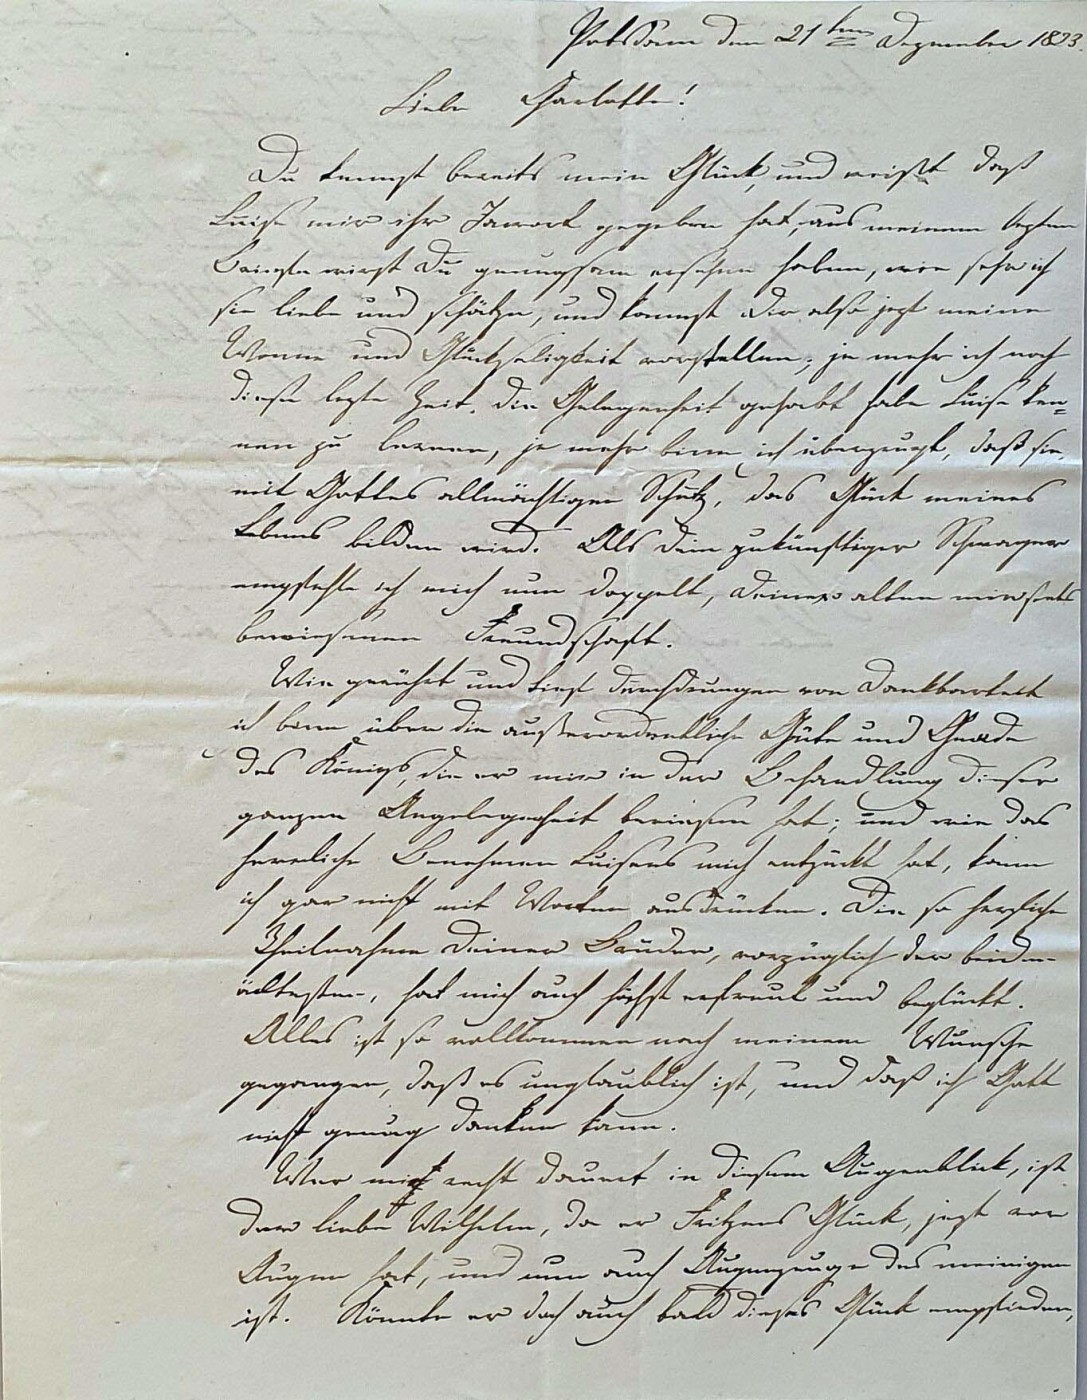 Potsdam den 21ten Dezember 1823.
Liebe Charlotte!
Du kennst bereits mein Glück, und weißt daß
Luise mir ihr Jawort gegeben hat, aus meinem lezten
Briefe wirst Du genugsam ersehen haben, wie sehr ich
sie liebe und schätze, und kannst Dir also jezt meine
Wonne und Glückseligkeit vorstellen; je mehr ich noch
diese lezte Zeit, die Gelegenheit gehabt habe Luise ken=
nen zu lernen, je mehr binn ich überzeugt, daß sie,
mit Gottes allmächtigen Schutz, das Glück meines
Lebens bilden wird. Als Dein zukünftiger Schwager
empfehle ich mich nun doppelt, Deiner alten mir stets
bewiesenen Freundschaft.
Wie gerührt und tief durchdrungen von Dankbarkeit
ich binn über die außerordentliche Güte und Gnade
des Königs, die er mir in der Behandlung dieser
ganzen Angelegenheit bewiesen hat; und wie das
herrliche Benehmen Luisens mich entzückt hat, kann
ich gar nicht mit Worten ausdrücken. Die so herzliche
Theilnahme Deiner Brüder, vorzüglich der beiden
ältesten, hat mich auch höchst erfreut und beglückt.
Alles ist so vollkommen nach meinem Wunsche
gegangen, daß es unglaublich ist, und daß ich Gott
nicht genug danken kann.
Wer mich recht dauert in diesem Augenblick, ist
der liebe Wilhelm, da er Fritzens Glück, jezt vor
Augen hat, und nun auch Augenzeuge des meinigen
ist. Könnte er doch auch bald dieses Glück empfinden,